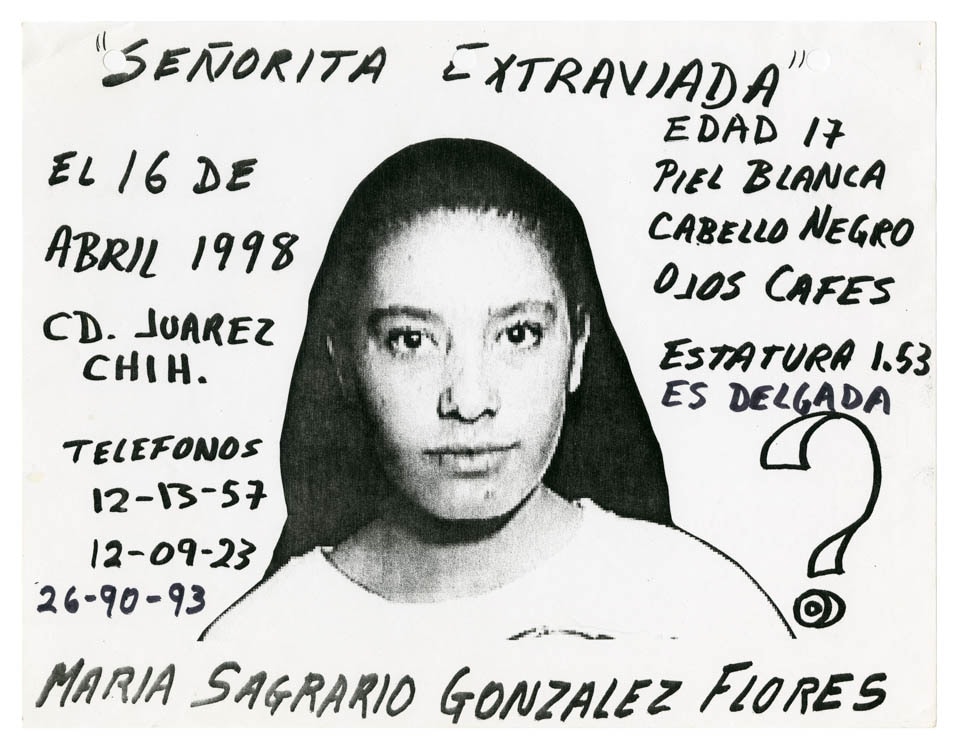 "SEÑORITA EXTRAVIADA"
EL 16 DE
ABRIL 1998
CD. JUAREZ
CHIH.
TELEFONOS
12-13-57
12-09-23
26-90-93
EDAD 17
PIEL BLANCA
CABELLO NEGRO
OJOS CAFES
ESTATURA 1.53
ES DELGADA
?
MARIA SAGRARIO GONZALEZ FLORES